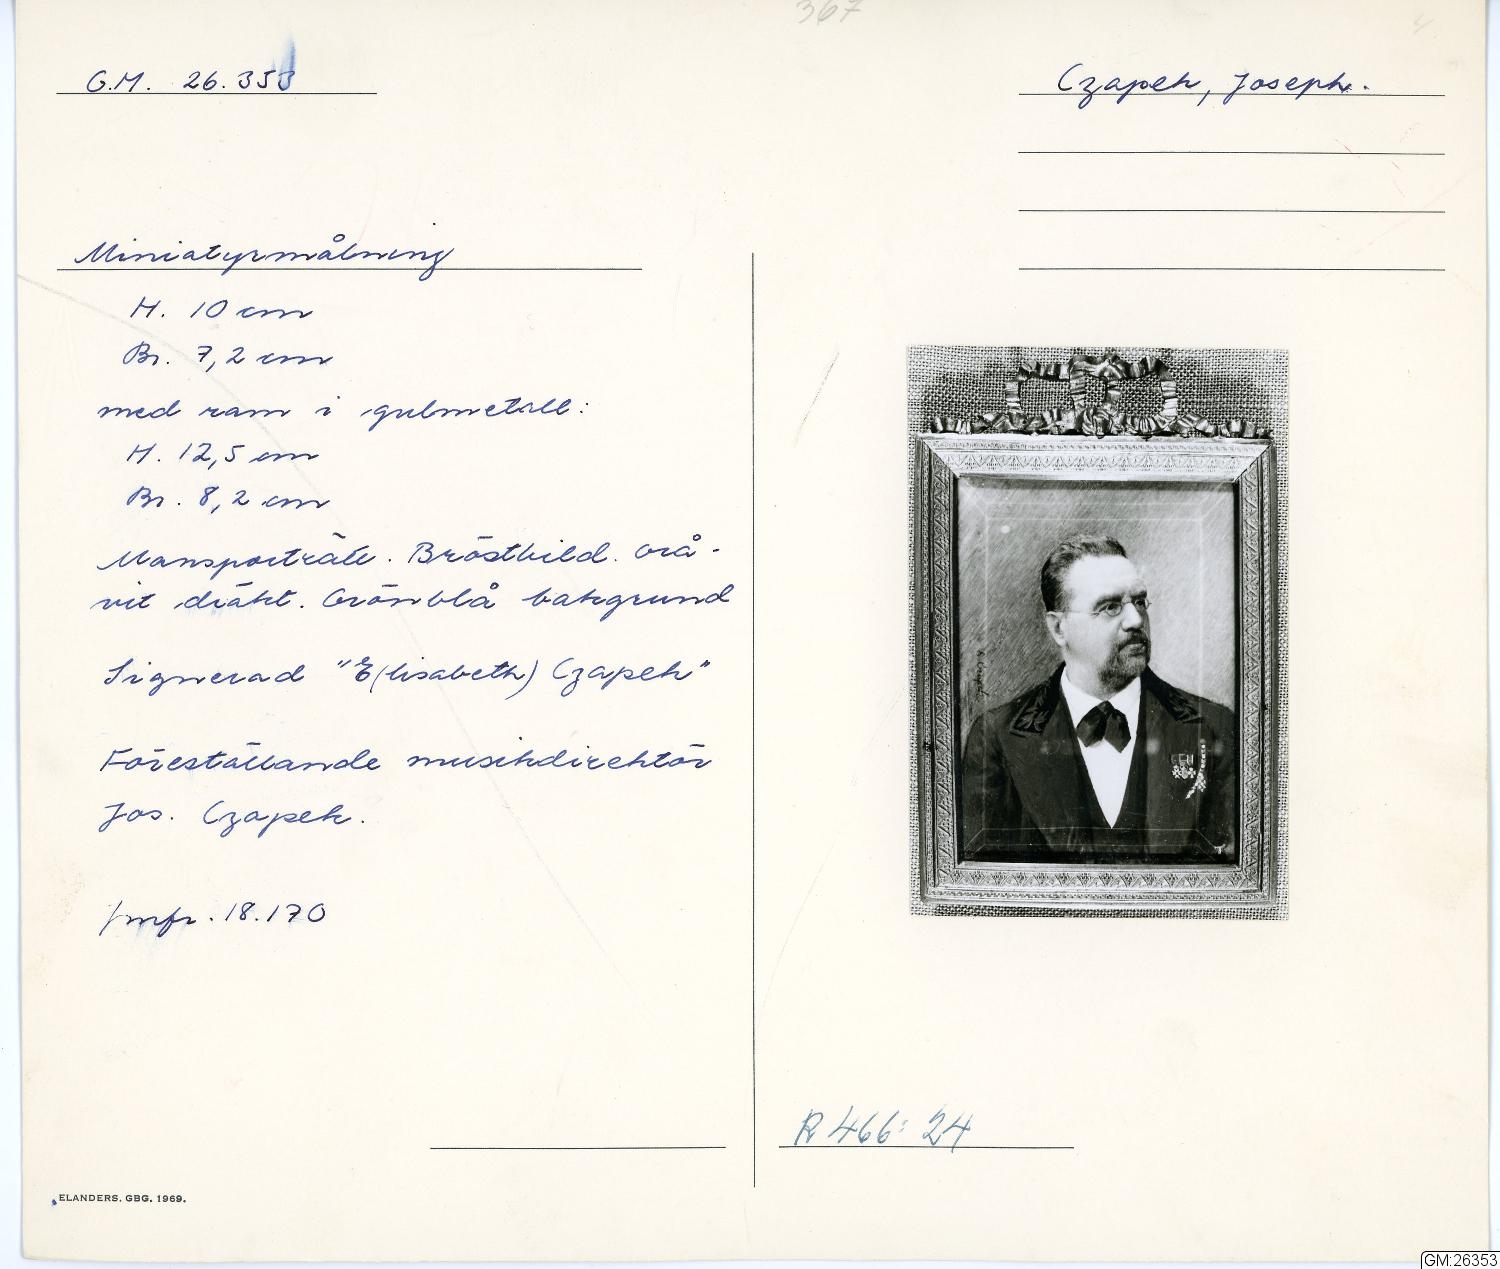 367
G.M. 26.353
Czapek, Joseph.
Miniatyrmålning
H. 10 cm
Br. 7,2 cm
med ram i gulmetall:
H. 12,5 cm
Br. 8,2 cm
Mansporträtt. Bröstbild. Grå-
vit dräkt. Grönblå bakgrund
Signerad "E(lisabeth) Czapek"
Föreställande musikdirektör
Jos. Czapek.
Jmfr. 18.170
R 466:24
ELANDERS. GBG. 1969.
GM:26353